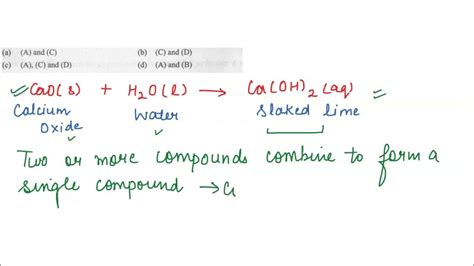 (a) (A) and (C) (b) (C) and (D)
(c) (A), (C) and (D) (d) (A) and (B)
CaO(s) + H2O(l) → Ca(OH)2(aq) =
Calcium Oxide Water Slaked lime
Two or more compounds combine to form a
single compound → C